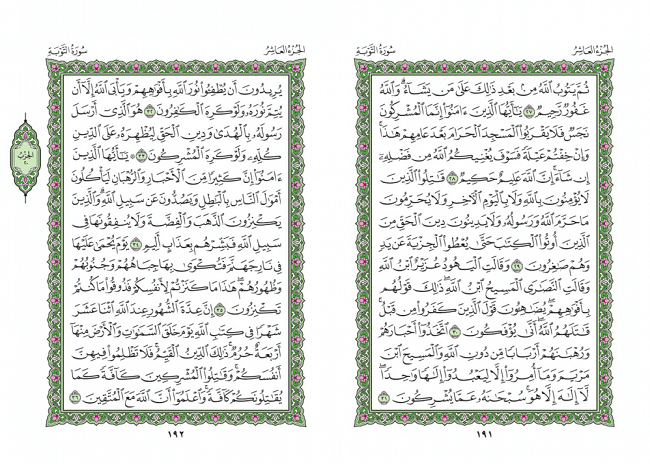 الجزء العاشر
سورة التوبة
ثُمَّ يَتُوبُ ٱللَّهُ مِنۢ بَعۡدِ ذَٰلِكَ عَلَىٰ مَن يَشَآءُۗ وَٱللَّهُ
غَفُورٞ رَّحِيمٞ ٢٧ يَٰٓأَيُّهَا ٱلَّذِينَ ءَامَنُوٓاْ إِنَّمَا ٱلۡمُشۡرِكُونَ
نَجَسٞ فَلَا يَقۡرَبُواْ ٱلۡمَسۡجِدَ ٱلۡحَرَامَ بَعۡدَ عَامِهِمۡ هَٰذَاۚ
وَإِنۡ خِفۡتُمۡ عَيۡلَةٗ فَسَوۡفَ يُغۡنِيكُمُ ٱللَّهُ مِن فَضۡلِهِۦٓ
إِن شَآءَۚ إِنَّ ٱللَّهَ عَلِيمٌ حَكِيمٞ ٢٨ قَٰتِلُواْ ٱلَّذِينَ
لَا يُؤۡمِنُونَ بِٱللَّهِ وَلَا بِٱلۡيَوۡمِ ٱلۡأٓخِرِ وَلَا يُحَرِّمُونَ
مَا حَرَّمَ ٱللَّهُ وَرَسُولُهُۥ وَلَا يَدِينُونَ دِينَ ٱلۡحَقِّ مِنَ
ٱلَّذِينَ أُوتُواْ ٱلۡكِتَٰبَ حَتَّىٰ يُعۡطُواْ ٱلۡجِزۡيَةَ عَن يَدٖ
وَهُمۡ صَٰغِرُونَ ٢٩ وَقَالَتِ ٱلۡيَهُودُ عُزَيۡرٌ ٱبۡنُ ٱللَّهِ
وَقَالَتِ ٱلنَّصَٰرَى ٱلۡمَسِيحُ ٱبۡنُ ٱللَّهِۖ ذَٰلِكَ قَوۡلُهُم
بِأَفۡوَٰهِهِمۡۖ يُضَٰهِـُٔونَ قَوۡلَ ٱلَّذِينَ كَفَرُواْ مِن قَبۡلُۚ
قَٰتَلَهُمُ ٱللَّهُۖ أَنَّىٰ يُؤۡفَكُونَ ٣٠ ٱتَّخَذُوٓاْ أَحۡبَارَهُمۡ
وَرُهۡبَٰنَهُمۡ أَرۡبَابٗا مِّن دُونِ ٱللَّهِ وَٱلۡمَسِيحَ ٱبۡنَ
مَرۡيَمَ وَمَآ أُمِرُوٓاْ إِلَّا لِيَعۡبُدُوٓاْ إِلَٰهٗا وَٰحِدٗاۖ
لَّآ إِلَٰهَ إِلَّا هُوَۚ سُبۡحَٰنَهُۥ عَمَّا يُشۡرِكُونَ ٣١
١٩١
الجزء العاشر
سورة التوبة
يُرِيدُونَ أَن يُطۡفِـُٔواْ نُورَ ٱللَّهِ بِأَفۡوَٰهِهِمۡ وَيَأۡبَى ٱللَّهُ إِلَّآ أَن
يُتِمَّ نُورَهُۥ وَلَوۡ كَرِهَ ٱلۡكَٰفِرُونَ ٣٢ هُوَ ٱلَّذِيٓ أَرۡسَلَ
رَسُولَهُۥ بِٱلۡهُدَىٰ وَدِينِ ٱلۡحَقِّ لِيُظۡهِرَهُۥ عَلَى ٱلدِّينِ
كُلِّهِۦ وَلَوۡ كَرِهَ ٱلۡمُشۡرِكُونَ ٣٣ ۞ يَٰٓأَيُّهَا ٱلَّذِينَ
ءَامَنُوٓاْ إِنَّ كَثِيرٗا مِّنَ ٱلۡأَحۡبَارِ وَٱلرُّهۡبَانِ لَيَأۡكُلُونَ
أَمۡوَٰلَ ٱلنَّاسِ بِٱلۡبَٰطِلِ وَيَصُدُّونَ عَن سَبِيلِ ٱللَّهِۗ وَٱلَّذِينَ
يَكۡنِزُونَ ٱلذَّهَبَ وَٱلۡفِضَّةَ وَلَا يُنفِقُونَهَا فِي
سَبِيلِ ٱللَّهِ فَبَشِّرۡهُم بِعَذَابٍ أَلِيمٖ ٣٤ يَوۡمَ يُحۡمَىٰ عَلَيۡهَا
فِي نَارِ جَهَنَّمَ فَتُكۡوَىٰ بِهَا جِبَاهُهُمۡ وَجُنُوبُهُمۡ
وَظُهُورُهُمۡۖ هَٰذَا مَا كَنَزۡتُمۡ لِأَنفُسِكُمۡ فَذُوقُواْ مَا كُنتُمۡ
تَكۡنِزُونَ ٣٥ إِنَّ عِدَّةَ ٱلشُّهُورِ عِندَ ٱللَّهِ ٱثۡنَا عَشَرَ
شَهۡرٗا فِي كِتَٰبِ ٱللَّهِ يَوۡمَ خَلَقَ ٱلسَّمَٰوَٰتِ وَٱلۡأَرۡضَ مِنۡهَآ
أَرۡبَعَةٌ حُرُمٞۚ ذَٰلِكَ ٱلدِّينُ ٱلۡقَيِّمُۚ فَلَا تَظۡلِمُواْ فِيهِنَّ
أَنفُسَكُمۡۚ وَقَٰتِلُواْ ٱلۡمُشۡرِكِينَ كَآفَّةٗ كَمَا
يُقَٰتِلُونَكُمۡ كَآفَّةٗۚ وَٱعۡلَمُوٓاْ أَنَّ ٱللَّهَ مَعَ ٱلۡمُتَّقِينَ ٣٦
١٩٢
الحزب
٢٠